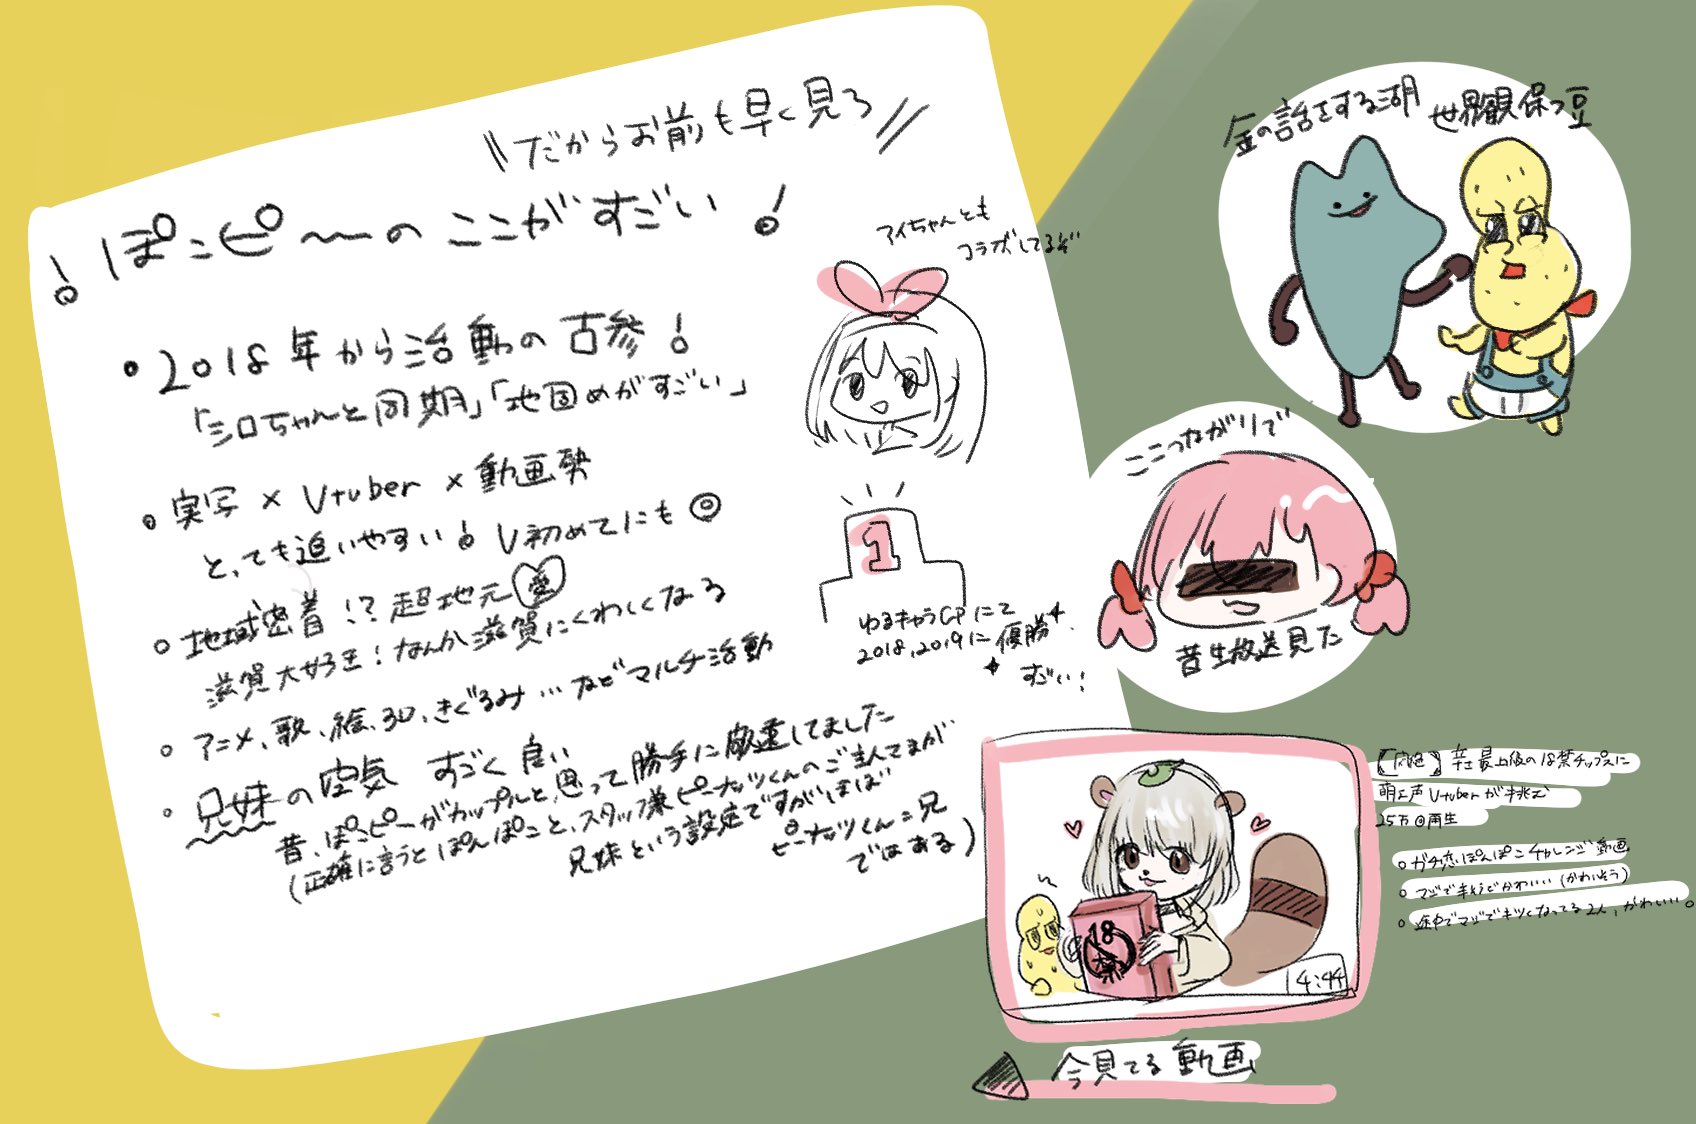 \\だからお前も早く見ろ//
！ぽこピーのここがすごい！
・2018年から活動の古参！
「シロちゃんと同期」「地固めがすごい」
・実写×Vtuber×動画勢
とっても追いやすい！V初めてにも◎
・地域密着!?超地元愛
滋賀大好き！なんか滋賀にくわしくなる
・アニメ、歌、絵、3D、きぐるみ…などマルチ活動
・兄妹の空気 すごく良い
昔、ぽこピーがカップルと思って勝手に敬遠してました
(正確に言うとぽんぽこと、スタッフ兼ピーナッツくんのご主人てまが
兄妹という設定ですがほぼ
ピーナッツくん=兄
ではある)
アイちゃんとも
コラボしてるぞ
1
ゆるキャラGPにて
2018、2019に優勝
すごい！
金の話をする湖
世界観保つ豆
ここつながりで
昔生放送見た
18
禁
14:44
今見てる動画
最上級の18禁チップスに
萌え声Vtuberが挑む
25万回再生
○ガチ恋ぽんぽこチャレンジ動画
○マジで辛そうでかわいい(かわいそう)
○途中でマジでキツくなってる2人、かわいい…。